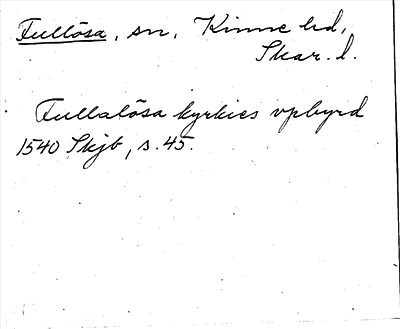 Fullösa, sn, Kinne hd,
Skar. l.
Fullalösa kyrkies vpbyrd
1540 Skjb, s. 45.